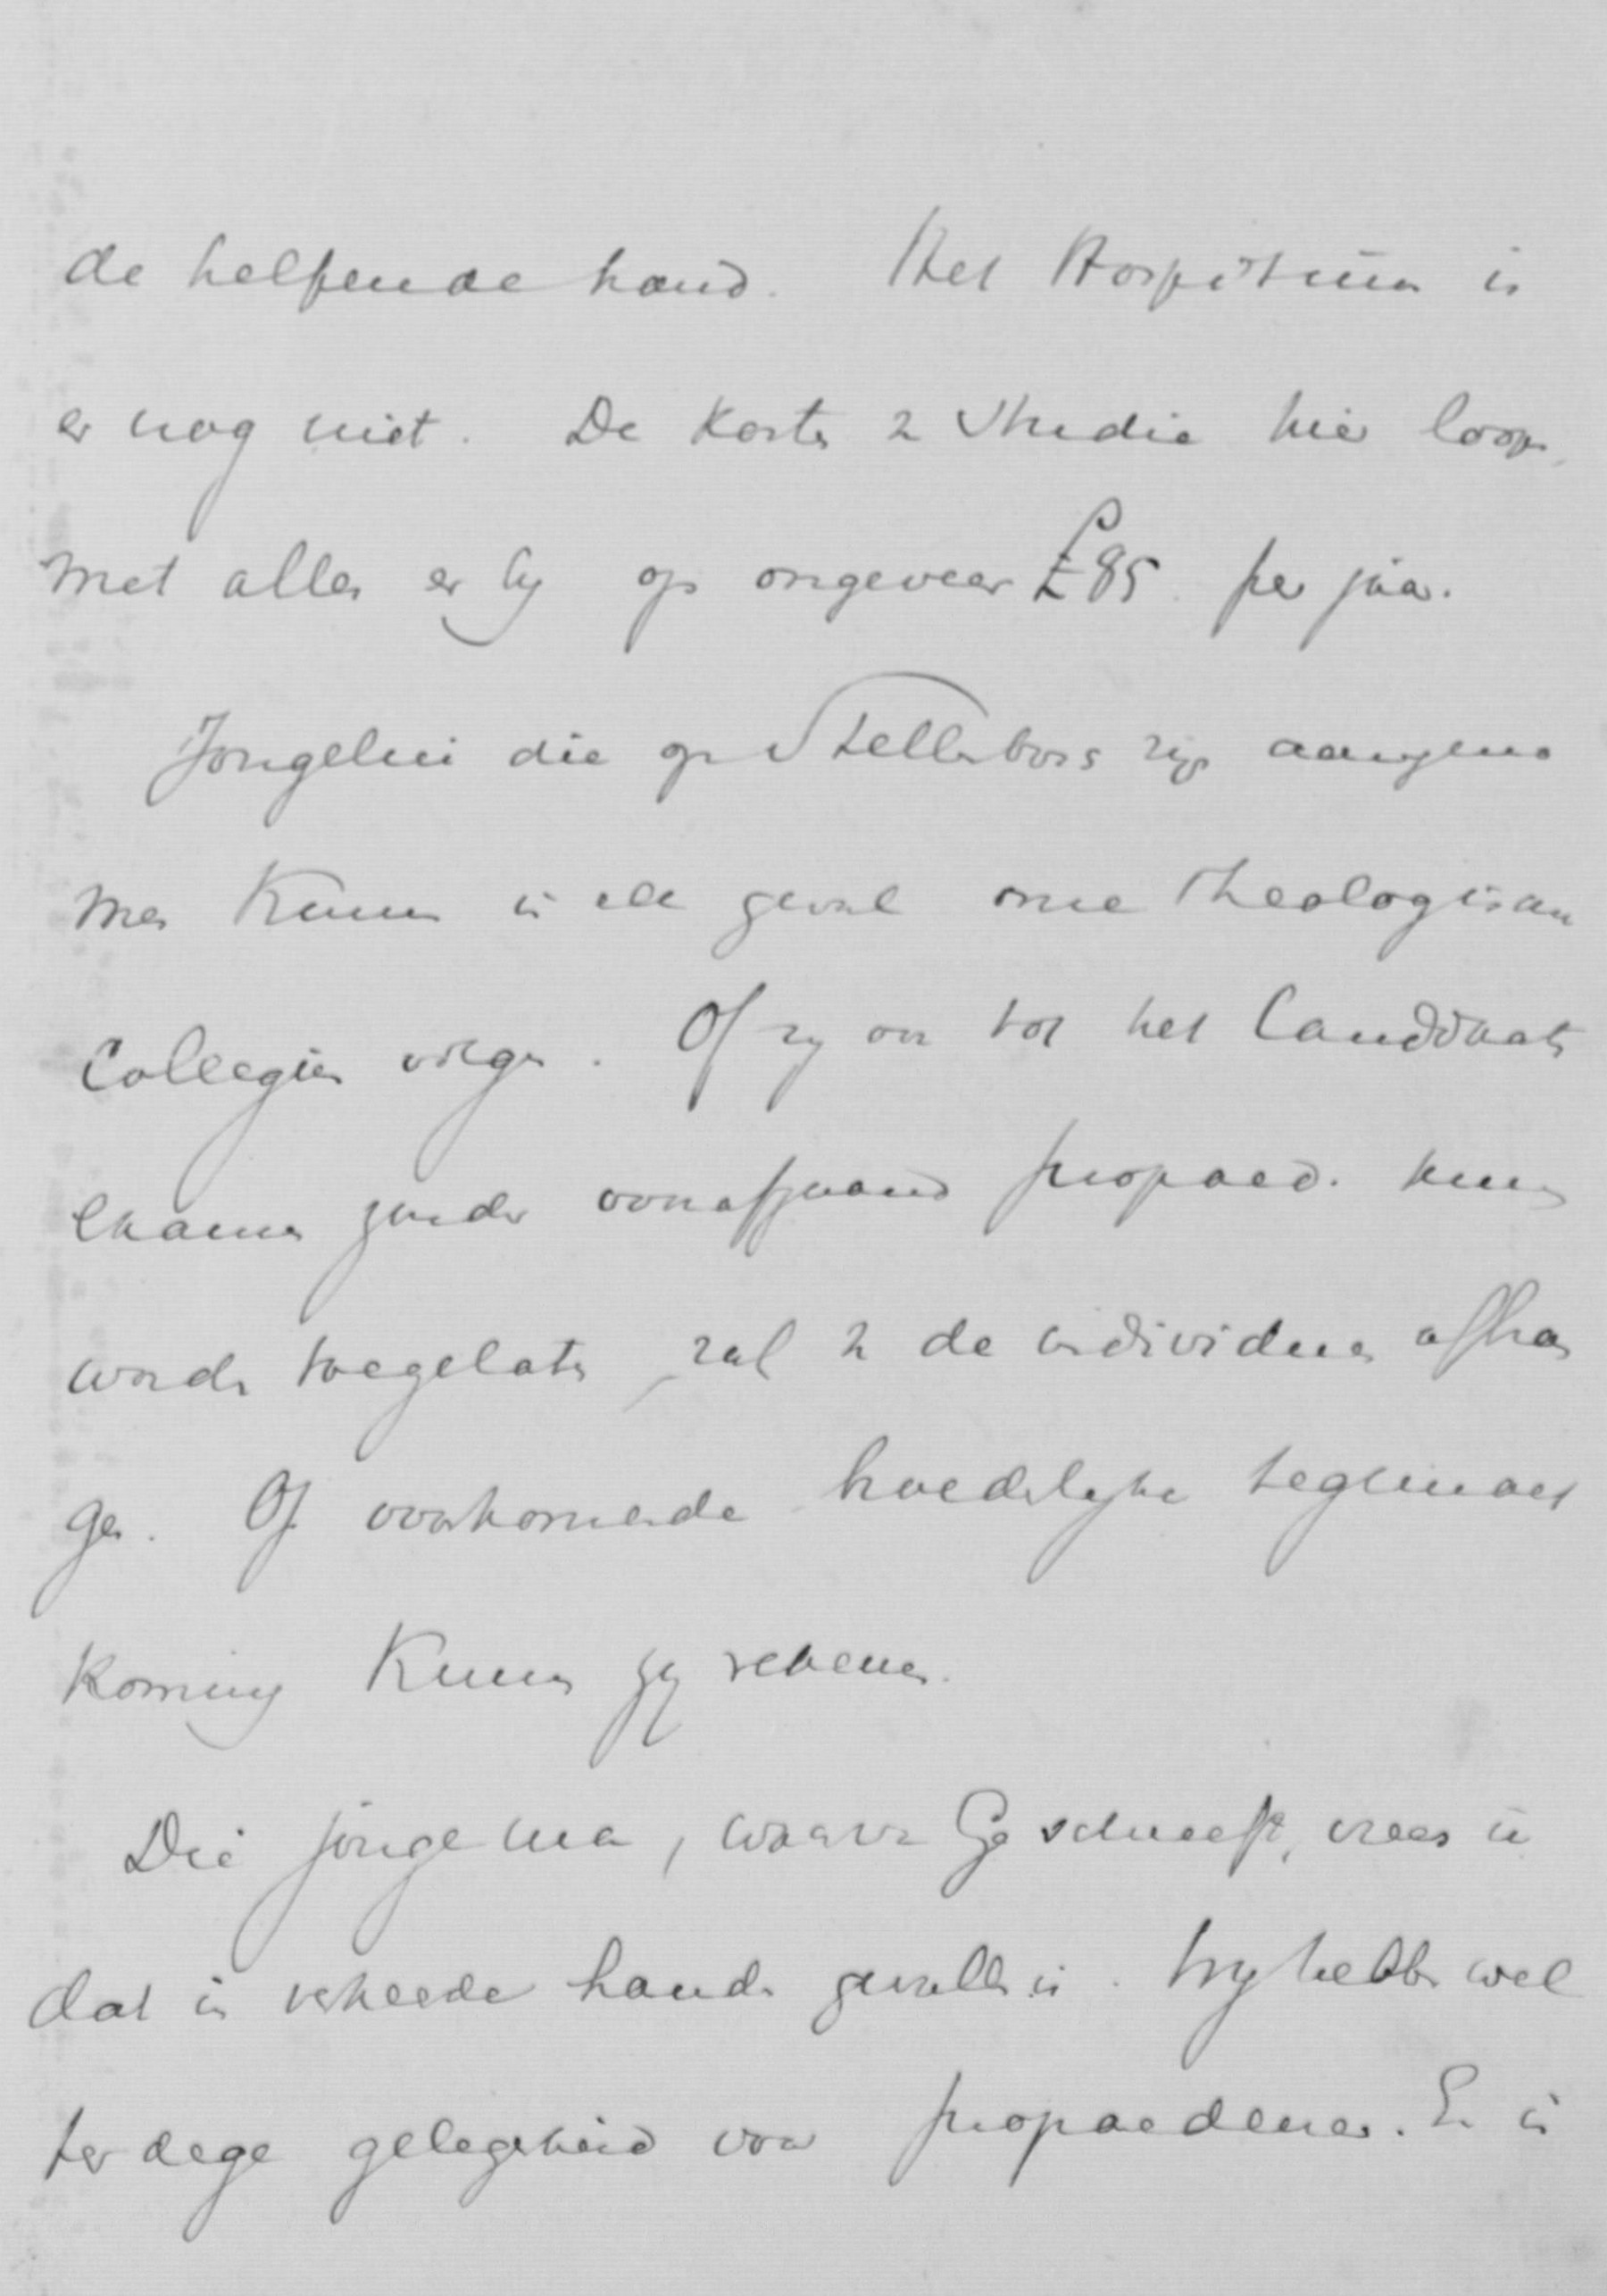 de helpende hand. Het Hospitium is
er nog niet. De Kosten v Studie hier loopen
met alles er by op ongeveer £85 per jaar.
Jongelui die op Stellenbos zijn aangeno
men Kunnen in elk geval onze Theologische
Collegien volgen. Of zy ook tot het Candidaats
examen zonder voorafgaand propaed. kunnen
worden toegelaten, zal v de individuen afhan
gen. Op voorkomende broederlyke tegemoet
koming Kunnen zy rekenen.
Die jonge man, waarvan Ge schreeft, vrees ik
dat in verkeerde handen gevallen is. Wy hebben wel
terdege gelegenheid voor propaedeuse. Er is